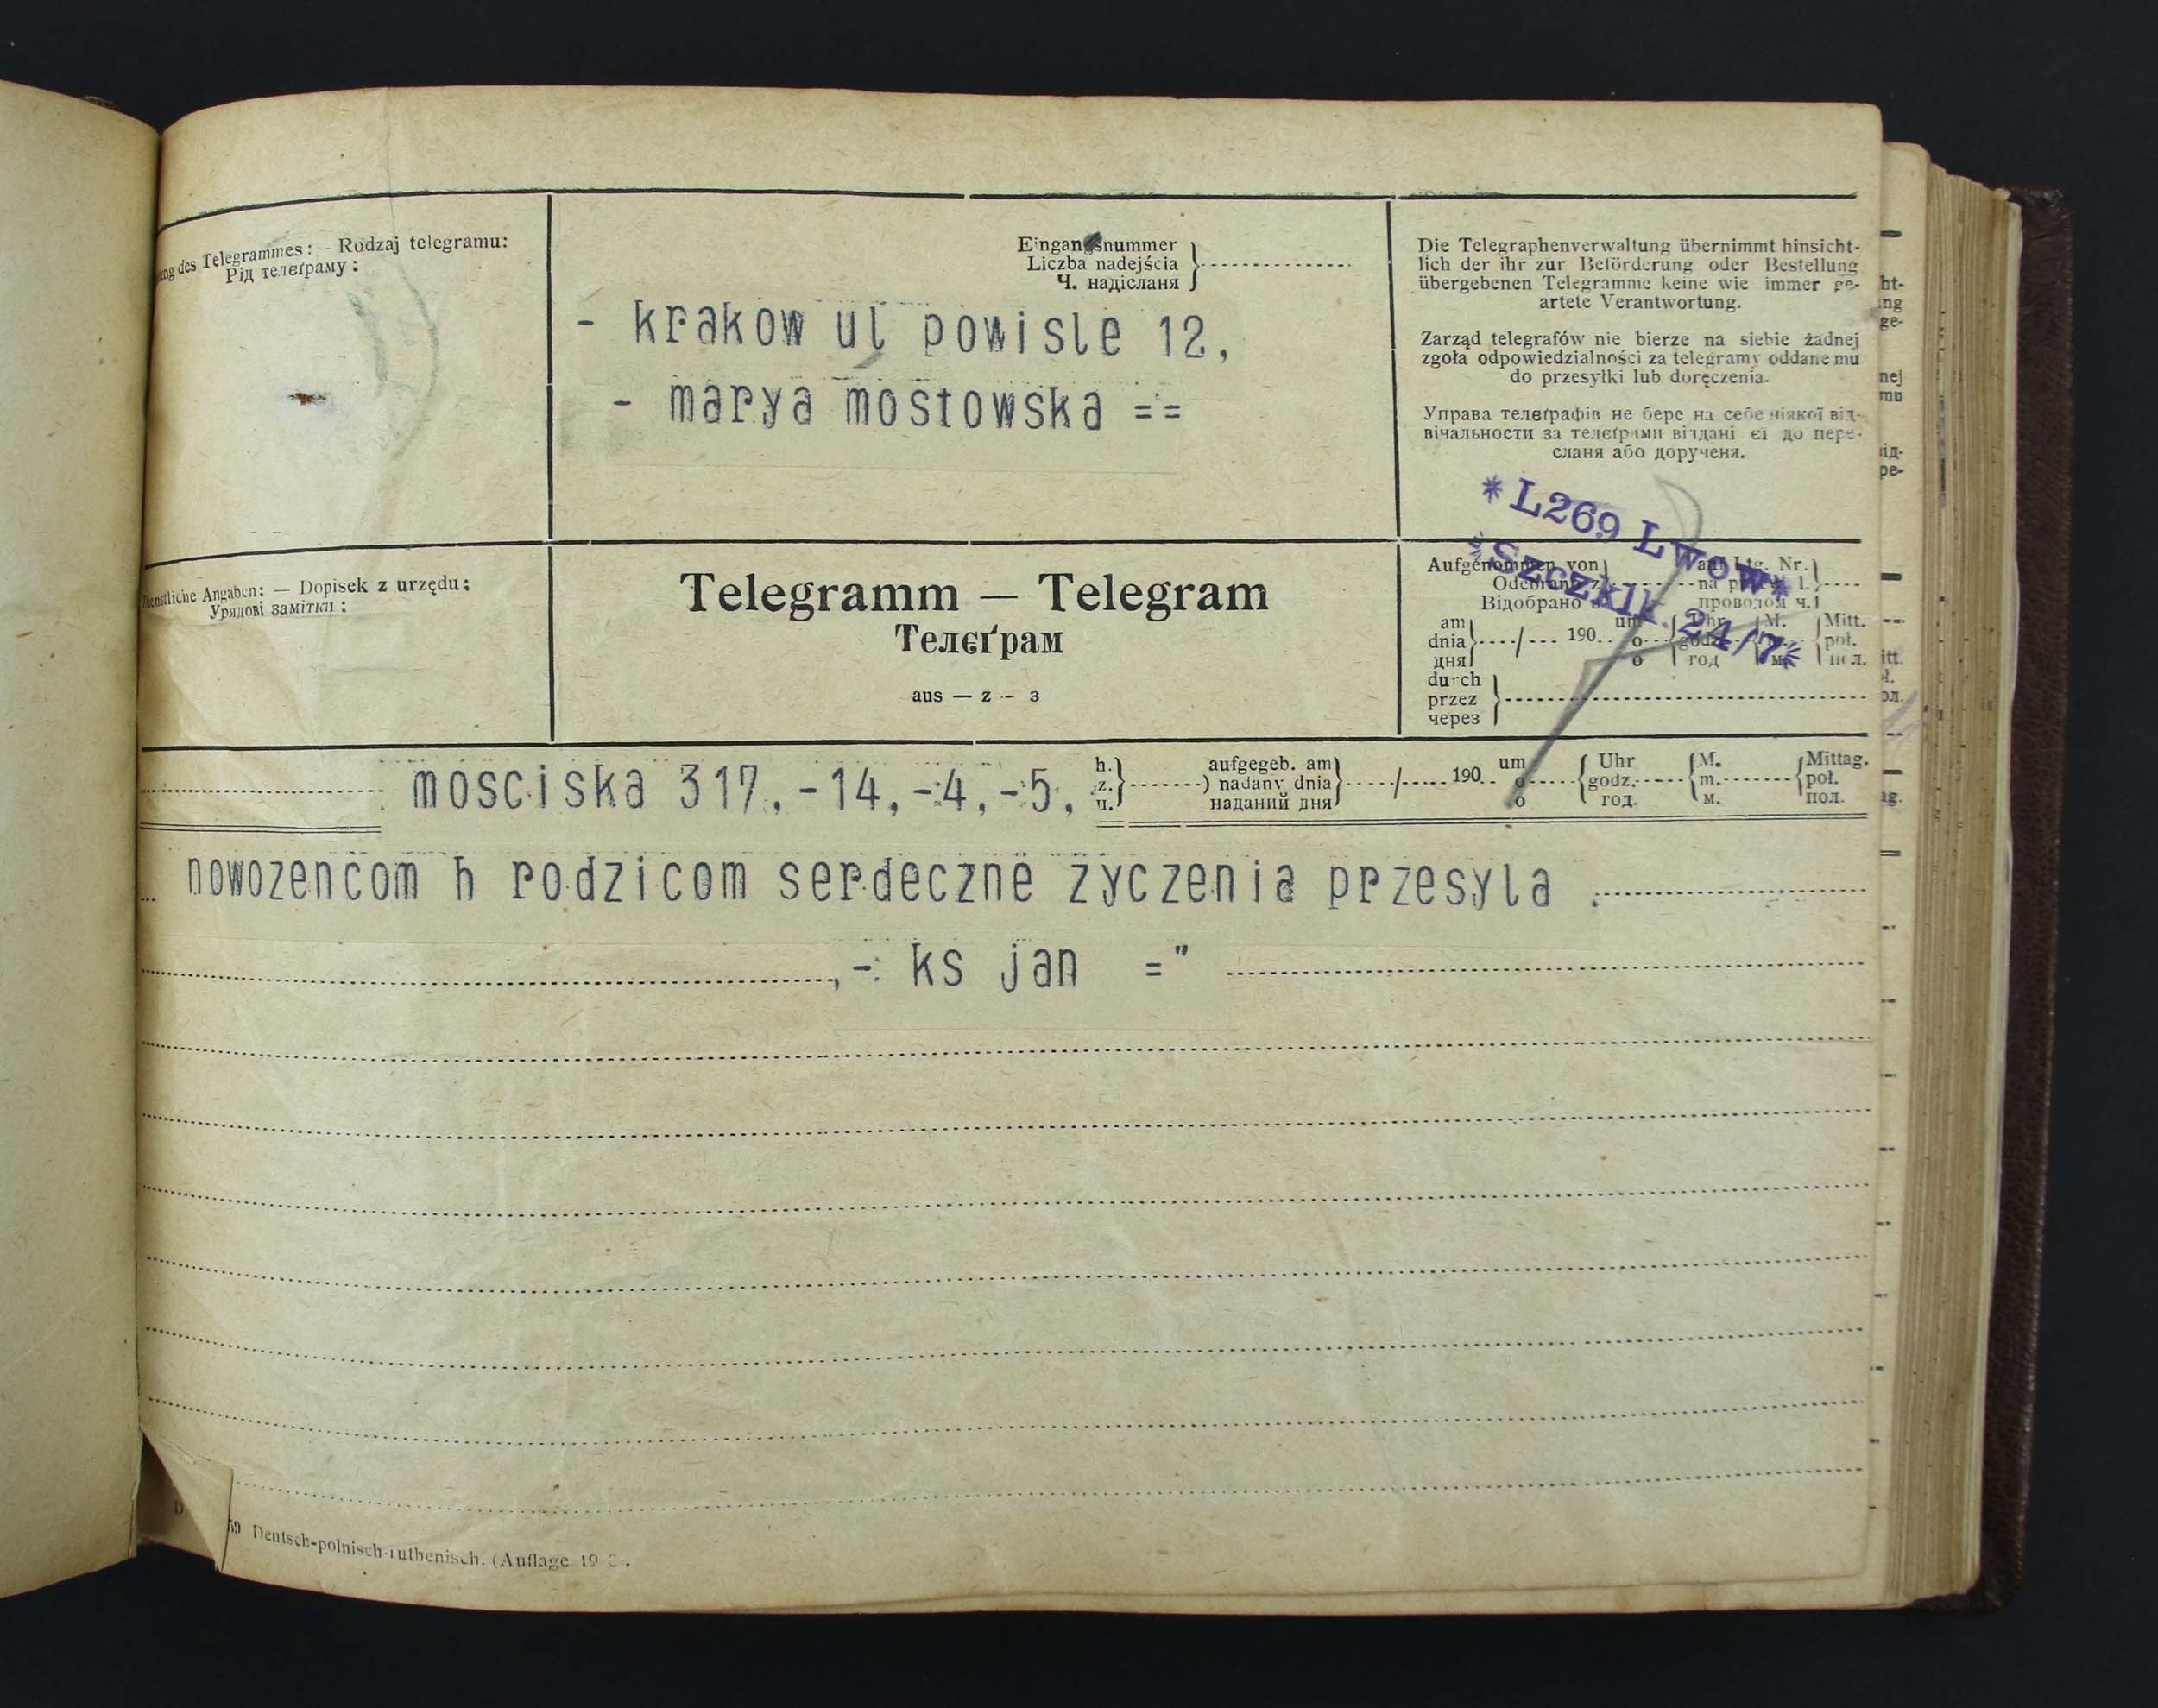 des Telegrammes: — Rodzaj telegramu:
Рід телєґраму:
Eingangsnummer
Liczba nadejścia
Ч. надісланя
- krakow ul powisle 12,
- marya mostowska ==
Die Telegraphenverwaltung übernimmt hinsicht-
lich der ihr zur Beförderung oder Bestellung
übergebenen Telegramme keine wie immer ge-
artete Verantwortung.
Zarząd telegrafów nie bierze na siebie żadnej
zgoła odpowiedzialności za telegramy oddane mu
do przesyłki lub doręczenia.
Управа телєґрафів не бере на себе ніякої від-
вічальности за телєґрами віддані єї до пере-
сланя або дорученя.
*L269 Lwow*
*Szczklk 24/7*
Dienstliche Angaben: — Dopisek z urzędu:
Урядові замітки:
Telegramm — Telegram
Телєґрам
aus — z — з
Aufgenommen von auf Ltg. Nr.
Odebrano z na l.
Відобрано проводом ч.
am / 190 um Uhr M. Mitt.
dnia o godz. poł.
дня о год м. пол.
durch
przez
через
mosciska 317, -14, -4, -5,
h. aufgegeb. am / 190 um Uhr M. Mittag.
z. ) nadany dnia o godz. m. poł.
ч. наданий дня о год. м. пол.
nowozencom h rodzicom serdeczne zyczenia przesyla .
,-: ks jan ="
Deutsch-polnisch-ruthenisch. (Auflage 19